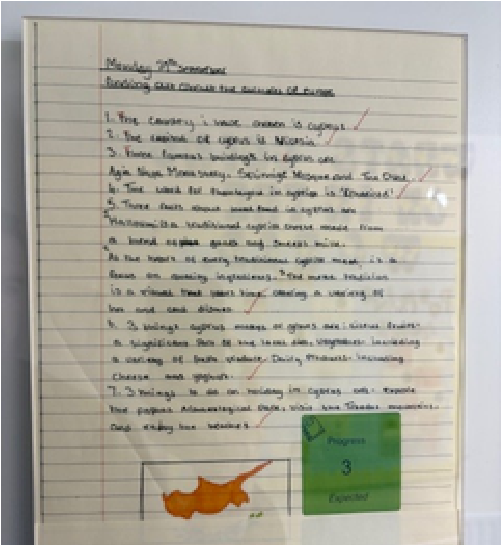 Monday 29th
Finding out about the cultures of Europe
1. The country i have chosen is cyprus.
2. The capital of cyprus is Nicosia
3. Three famous buildings in cyprus are
Agia Napa Monastery, Mosque and The
4. The word for in cyprus is
5. Three facts about food in cyprus are
Halloumi is a traditional cyprus cheese made from
a blend of goats and sheeps milk.
At the heart of every traditional cyprus meal is a
focus on quality ingredients. The meze tradition
is a vibrant offering a variety of
hot and cold dishes.
6. 3 things cyprus makes or grows are: citrus fruits-
a significant part of the local diet, vegetables- including
a variety of fresh produce Dairy Products- including
cheese and yoghurt.
7. 3 things to do on holiday in cyprus are- explore
the paphos Archaeological Park, visit the Troodos mountains,
and enjoy the beaches
Progress
3
Expected